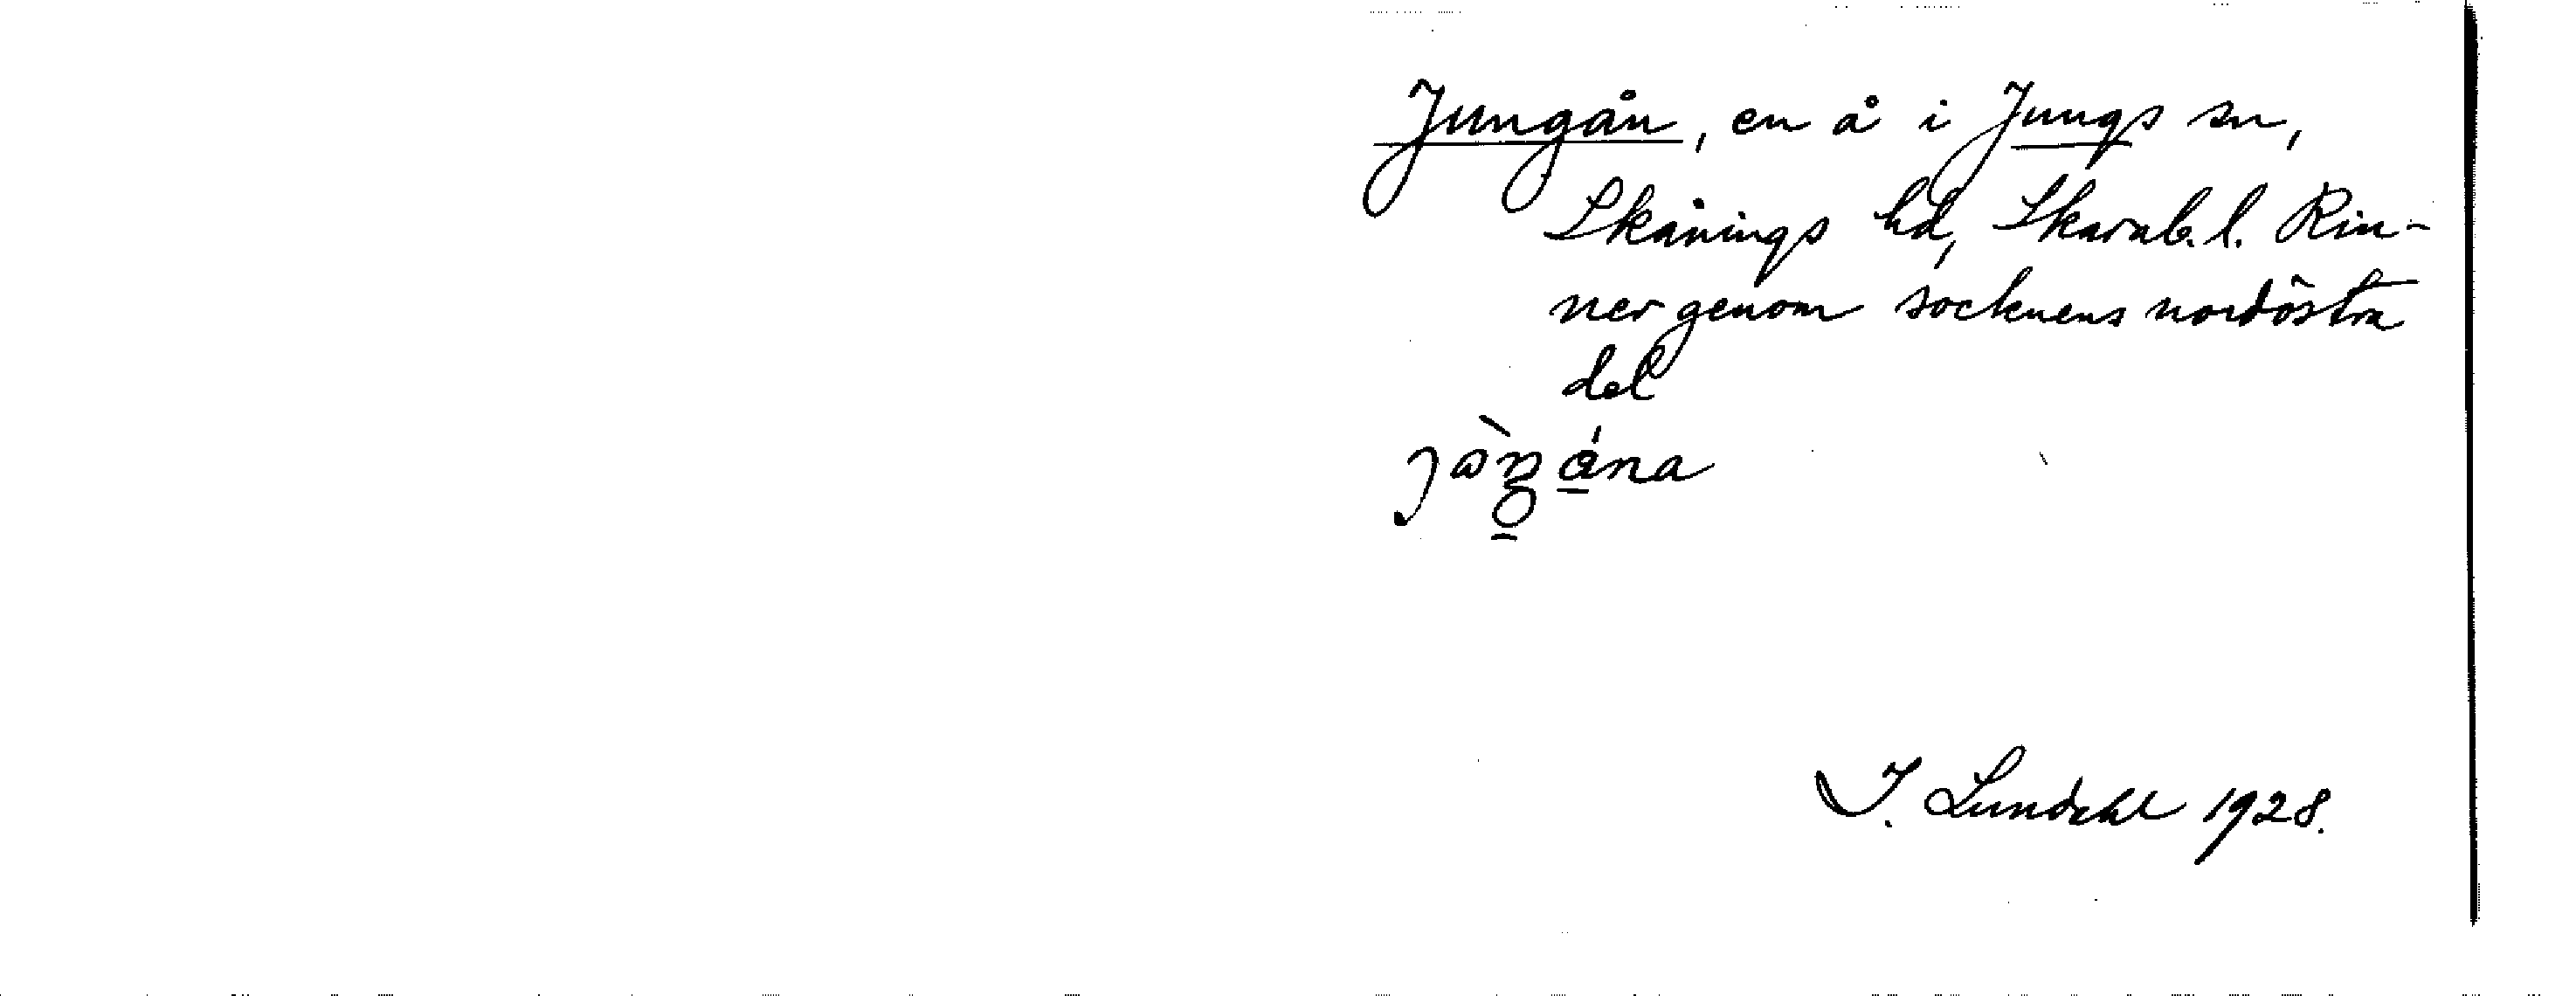 Jungån, en å i Jungs sn,
Skånings hd, Skarab. l. Rin-
ner genom socknens nordöstra
del
I. Lundahl 1928.